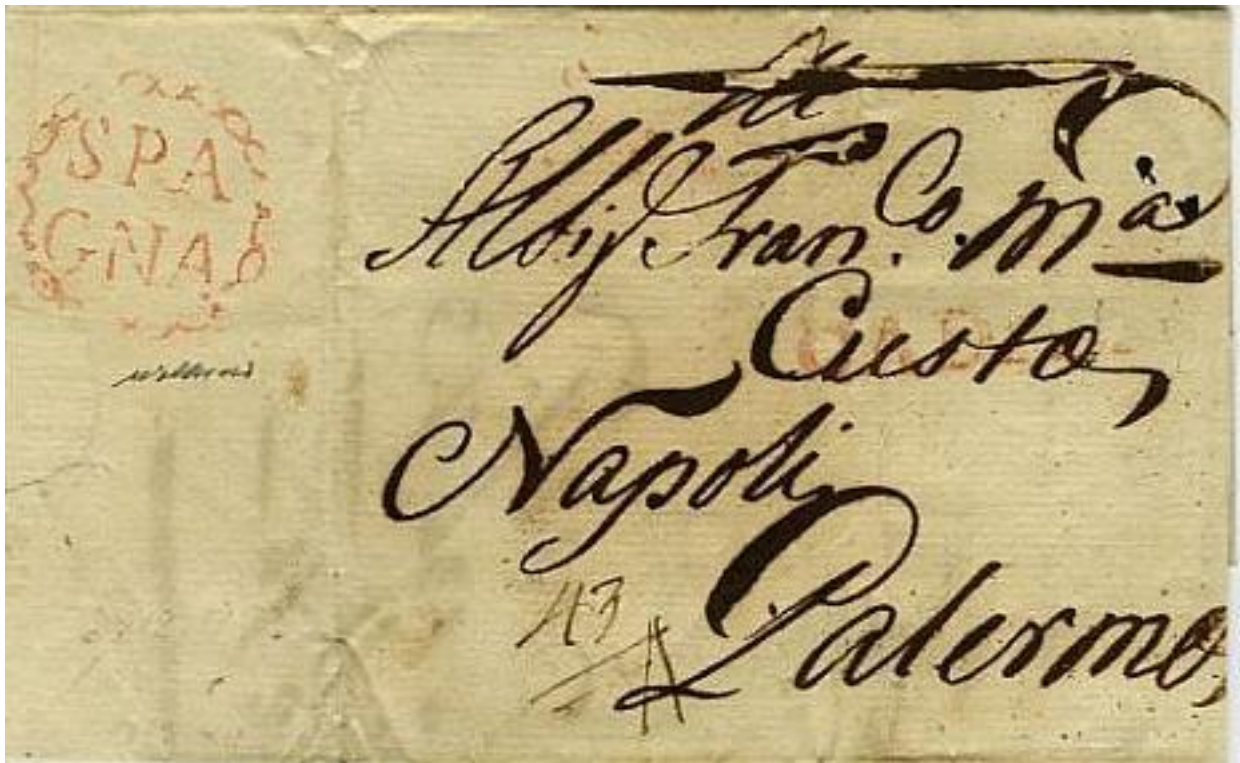 SPA
GNA
Fran.co M.a
Custo
Napoli
Palermo
43